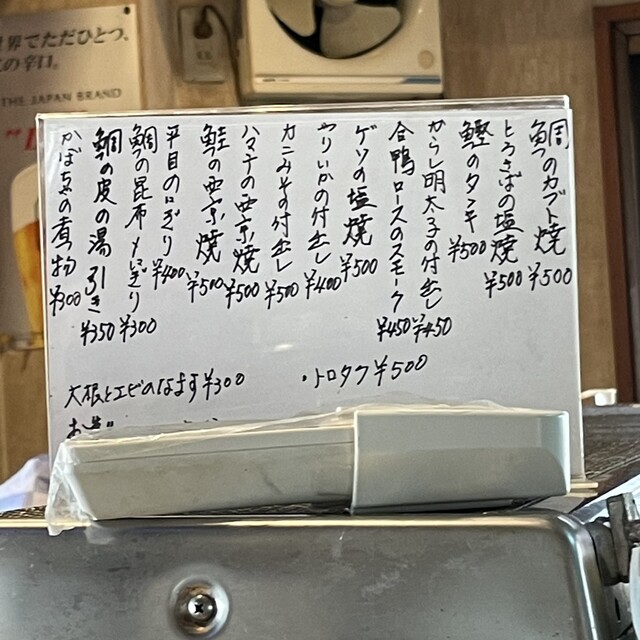 鯛のカブト焼 ¥500
とろさばの塩焼 ¥500
鰹のタタキ ¥500
からし明太子の付出し ¥450
合鴨ロースのスモーク ¥450
ゲソの塩焼 ¥500
やりいかの付出し ¥400
カニみその付出し ¥500
ハマチの西京焼 ¥500
鮭の西京焼 ¥500
平目のにぎり ¥400
鯛の昆布〆にぎり ¥300
鯛の皮の湯引き ¥350
かぼちゃの煮物 ¥300
・トロタク ¥500
大根とエビのなます ¥300
世界でただひとつ。
の辛口。
THE JAPAN BRAND